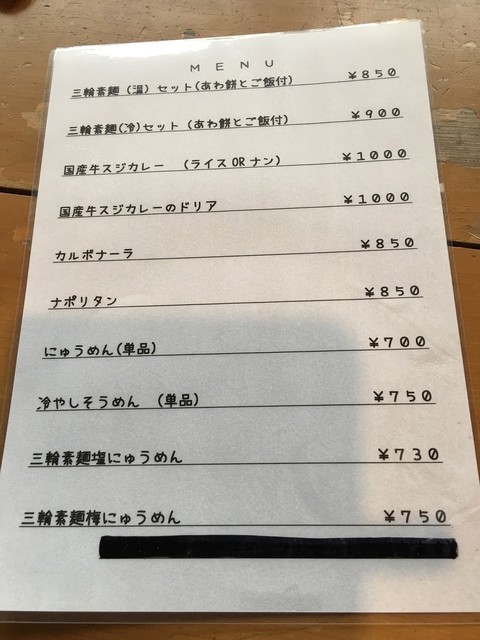 MENU
三輪素麺(温)セット(あわ餅とご飯付) ¥850
三輪素麺(冷)セット(あわ餅とご飯付) ¥900
国産牛スジカレー (ライスORナン) ¥1000
国産牛スジカレーのドリア ¥1000
カルボナーラ ¥850
ナポリタン ¥850
にゅうめん(単品) ¥700
冷やしそうめん (単品) ¥750
三輪素麺塩にゅうめん ¥730
三輪素麺梅にゅうめん ¥750